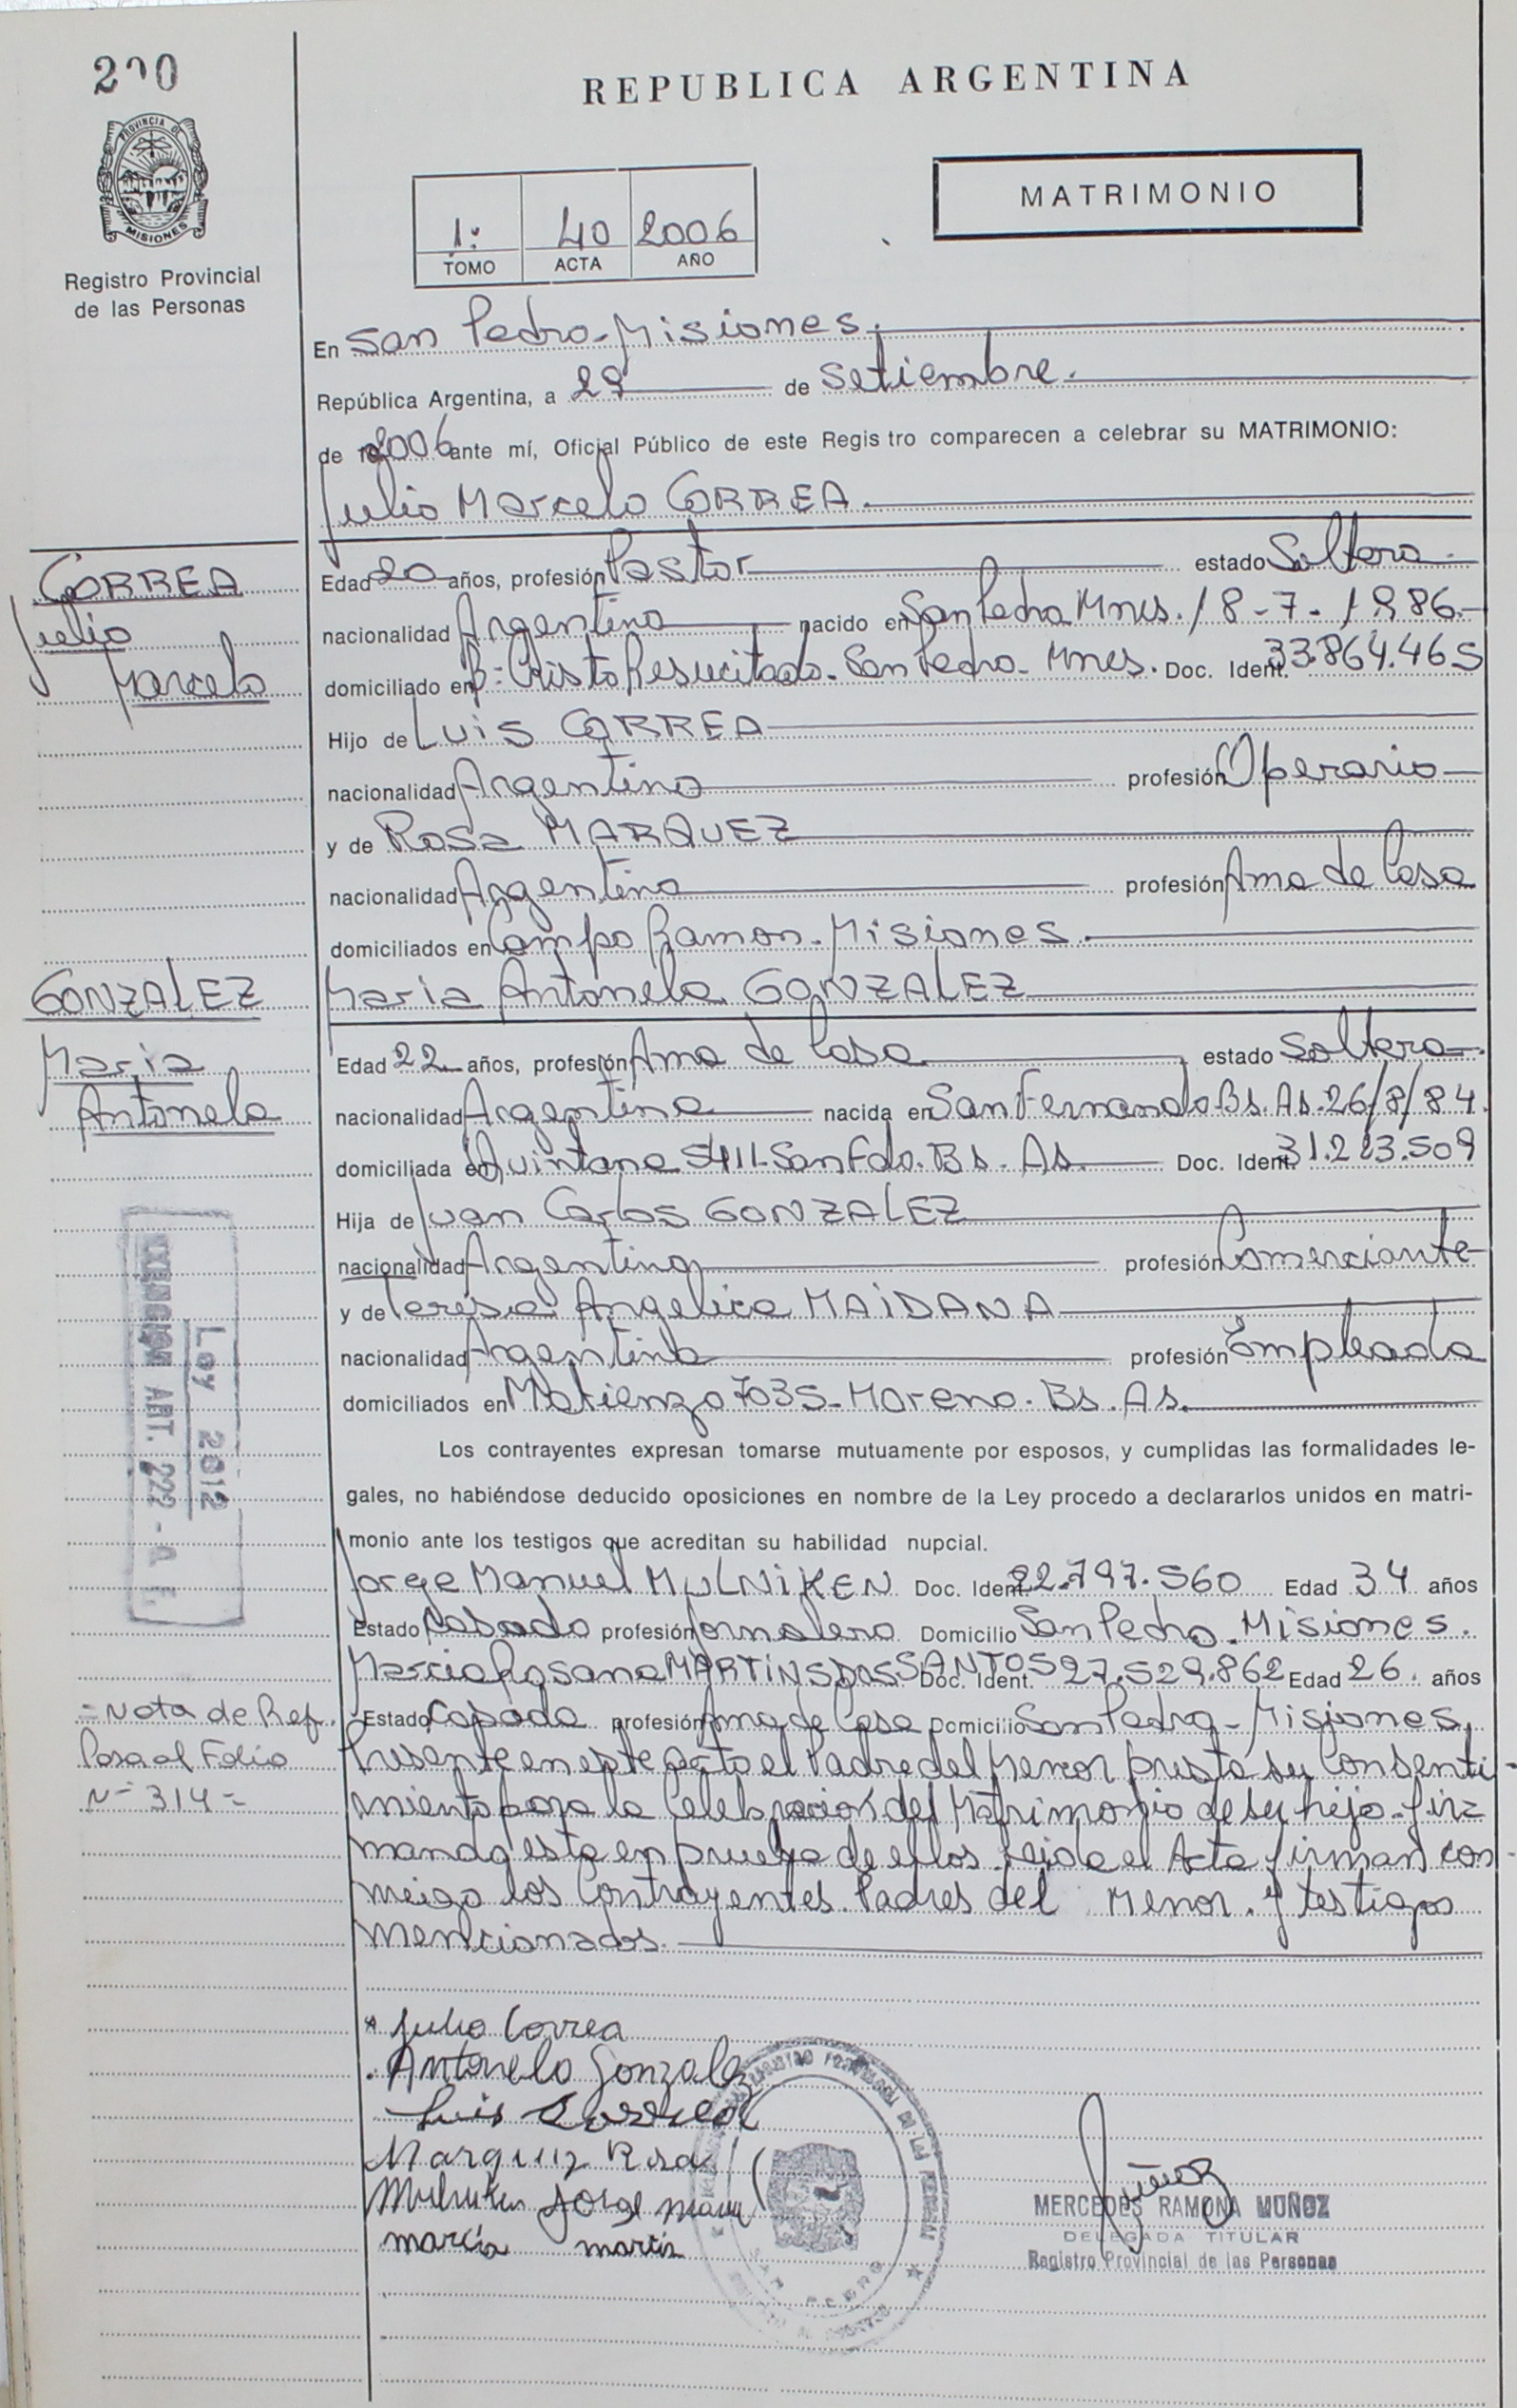 REPUBLICA ARGENTINA
PROVINCIA DE
MISIONES
Registro Provincial
de las Personas
1º 40 2006
TOMO ACTA AÑO
MATRIMONIO
En San Pedro-Misiones.
República Argentina, a 29 de Setiembre.
de 2006 ante mí, Oficial Público de este Regis tro comparecen a celebrar su MATRIMONIO:
Julio Marcelo CORREA
CORREA
Julio
Marcelo
Edad 20 años, profesión Pastor estado Soltero
nacionalidad Argentina nacido en San Pedro Mnes. 18-7-1986.
domiciliado en Bº Cristo Resucitado. San Pedro. Mnes. Doc. Ident. 33.864.465
Hijo de Luis CORREA
nacionalidad Argentino profesión Operario
y de Rosa MARQUEZ
nacionalidad Argentina profesión Ama de Casa
domiciliados en Campo Ramon-Misiones.
GONZALEZ
Maria
Antonela
Maria Antonela GONZALEZ
Edad 22 años, profesión Ama de Casa estado Soltera
nacionalidad Argentina nacida en San Fernando Bs. As. 26/8/84.
domiciliada en Quintana 5411-San Fdo. Bs. As. Doc. Ident. 31.223.509
Hija de Juan Carlos GONZALEZ
nacionalidad Argentino profesión Comerciante
y de Teresa Angelica MAIDANA
nacionalidad Argentina profesión Empleada
domiciliados en Matienzo 7035-Moreno. Bs. As.
Ley 2812
EXENCION ART. 222 -
Los contrayentes expresan tomarse mutuamente por esposos, y cumplidas las formalidades le-
gales, no habiéndose deducido oposiciones en nombre de la Ley procedo a declararlos unidos en matri-
monio ante los testigos que acreditan su habilidad nupcial.
Jorge Manuel MULNIKEN Doc. Ident. 22.797.560 Edad 34 años
Estado Casado profesión Jornalero Domicilio San Pedro. Misiones.
Marcia Rosana MARTINS DOS SANTOS Doc. Ident. 27.529.862 Edad 26 años
Estado Casada profesión Ama de Casa Domicilio San Pedro-Misiones.
= Nota de Ref.
Pasa al Folio
Nº 314 =
Presente en este Acto el Padre del Menor presta su Consenti-
miento para la Celebracion del Matrimonio de su hijo. fir=
mando esta en prueba de ellos. leida el Acta firman con-
migo los Contrayentes. Padres del Menor. y testigos
mencionados.
Julio Correa
Antonela Gonzalez
Luis Correa
Marquez Rosa
Mulniken Jorge
marcia martin
MERCEDES RAMONA MUÑOZ
DELEGADA TITULAR
Registro Provincial de las Personas